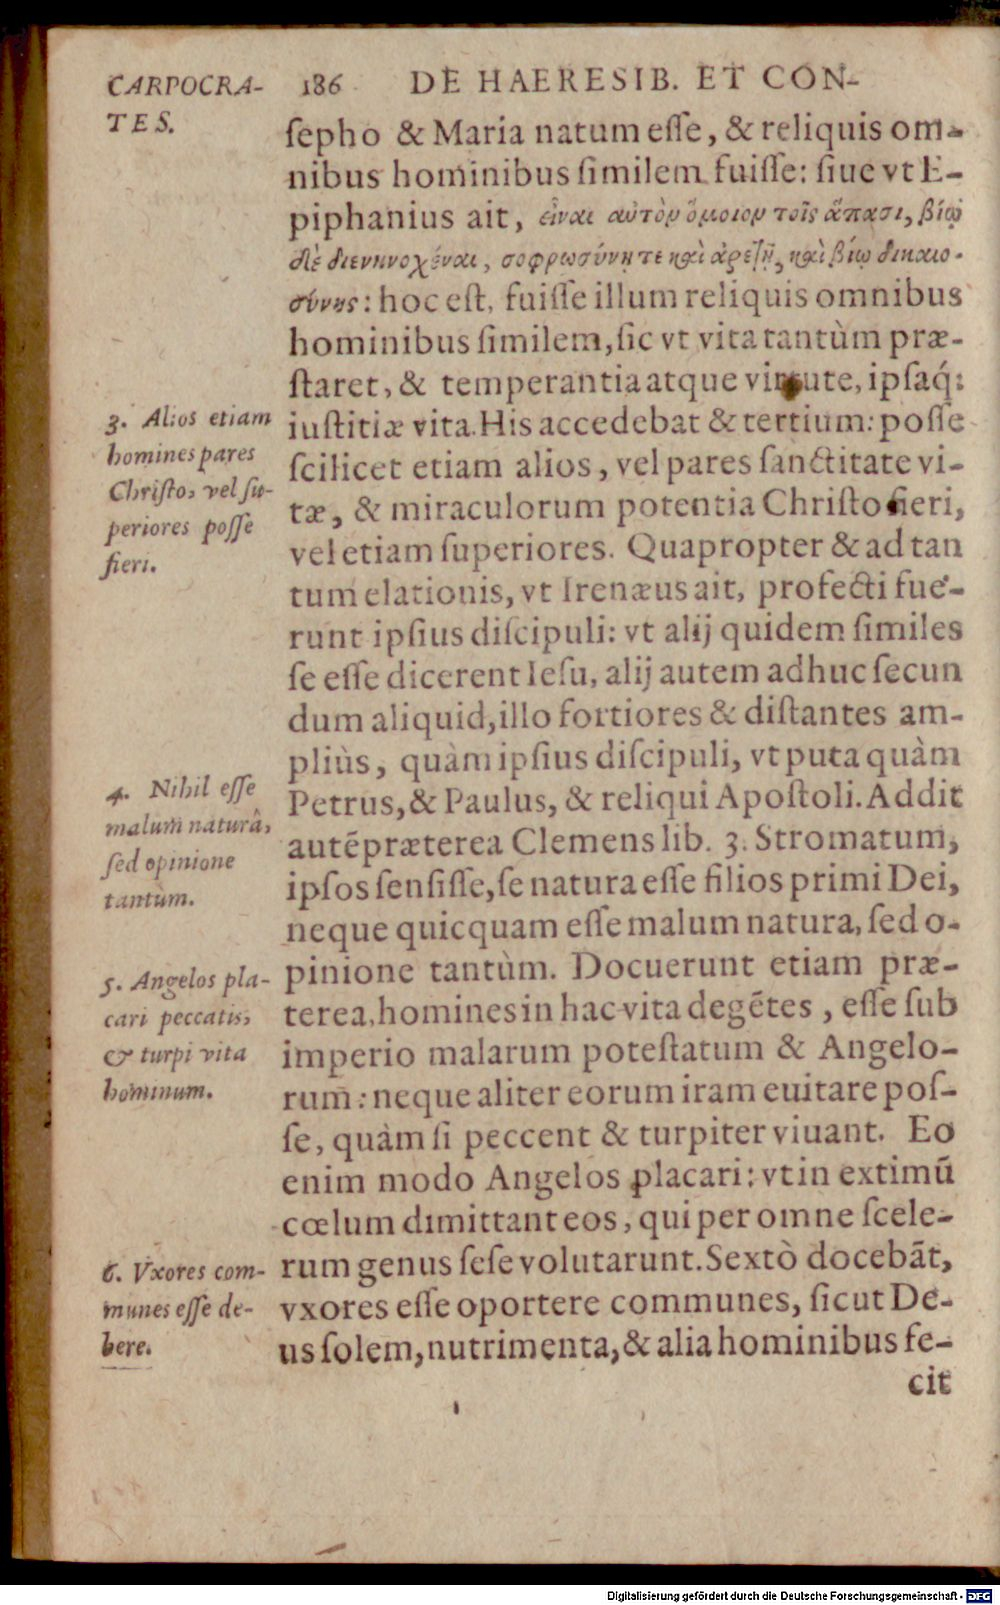 CARPOCRA-
TES.
186 DE HAERESIB. ET CON-
ſepho & Maria natum eſſe, & reliquis om-
nibus hominibus ſimilem fuiſſe: ſiue vt E-
piphanius ait, εἶναι αὐτὸν ὅμοιον τοῖς ἅπασι, βίῳ
δὲ διενηνοχέναι, σοφρωσύνῃ τε καὶ ἀρετῇ, καὶ βίῳ δικαιο-
σύνης: hoc eſt, fuiſſe illum reliquis omnibus
hominibus ſimilem, ſic vt vita tantùm præ-
ſtaret, & temperantia atque virtute, ipſaq́;
iuſtitiæ vita. His accedebat & tertium: poſſe
ſcilicet etiam alios, vel pares ſanctitate vi-
tæ, & miraculorum potentia Chriſto fieri,
vel etiam ſuperiores. Quapropter & ad tan
tum elationis, vt Irenæus ait, profecti fue-
runt ipſius diſcipuli: vt alij quidem ſimiles
ſe eſſe dicerent Ieſu, alij autem adhuc ſecun
dum aliquid, illo fortiores & diſtantes am-
pliùs, quàm ipſius diſcipuli, vt puta quàm
Petrus, & Paulus, & reliqui Apoſtoli. Addit
autē præterea Clemens lib. 3. Stromatum,
ipſos ſenſiſſe, ſe natura eſſe filios primi Dei,
neque quicquam eſſe malum natura, ſed o-
pinione tantùm. Docuerunt etiam præ-
terea, homines in hac vita degētes, eſſe ſub
imperio malarum poteſtatum & Angelo-
rum: neque aliter eorum iram euitare poſ-
ſe, quàm ſi peccent & turpiter viuant. Eo
enim modo Angelos placari: vt in extimū
cœlum dimittant eos, qui per omne ſcele-
rum genus ſeſe volutarunt. Sextò docebāt,
vxores eſſe oportere communes, ſicut De-
us ſolem, nutrimenta, & alia hominibus fe-
cit
3. Alios etiam
homines pares
Chriſto, vel ſu-
periores poſſe
fieri.
4. Nihil eſſe
malum naturâ,
ſed opinione
tantùm.
5. Angelos pla-
cari peccatis,
& turpi vita
hominum.
6. Vxores com-
munes eſſe de-
bere.
Digitalisierung gefördert durch die Deutsche Forschungsgemeinschaft - DFG